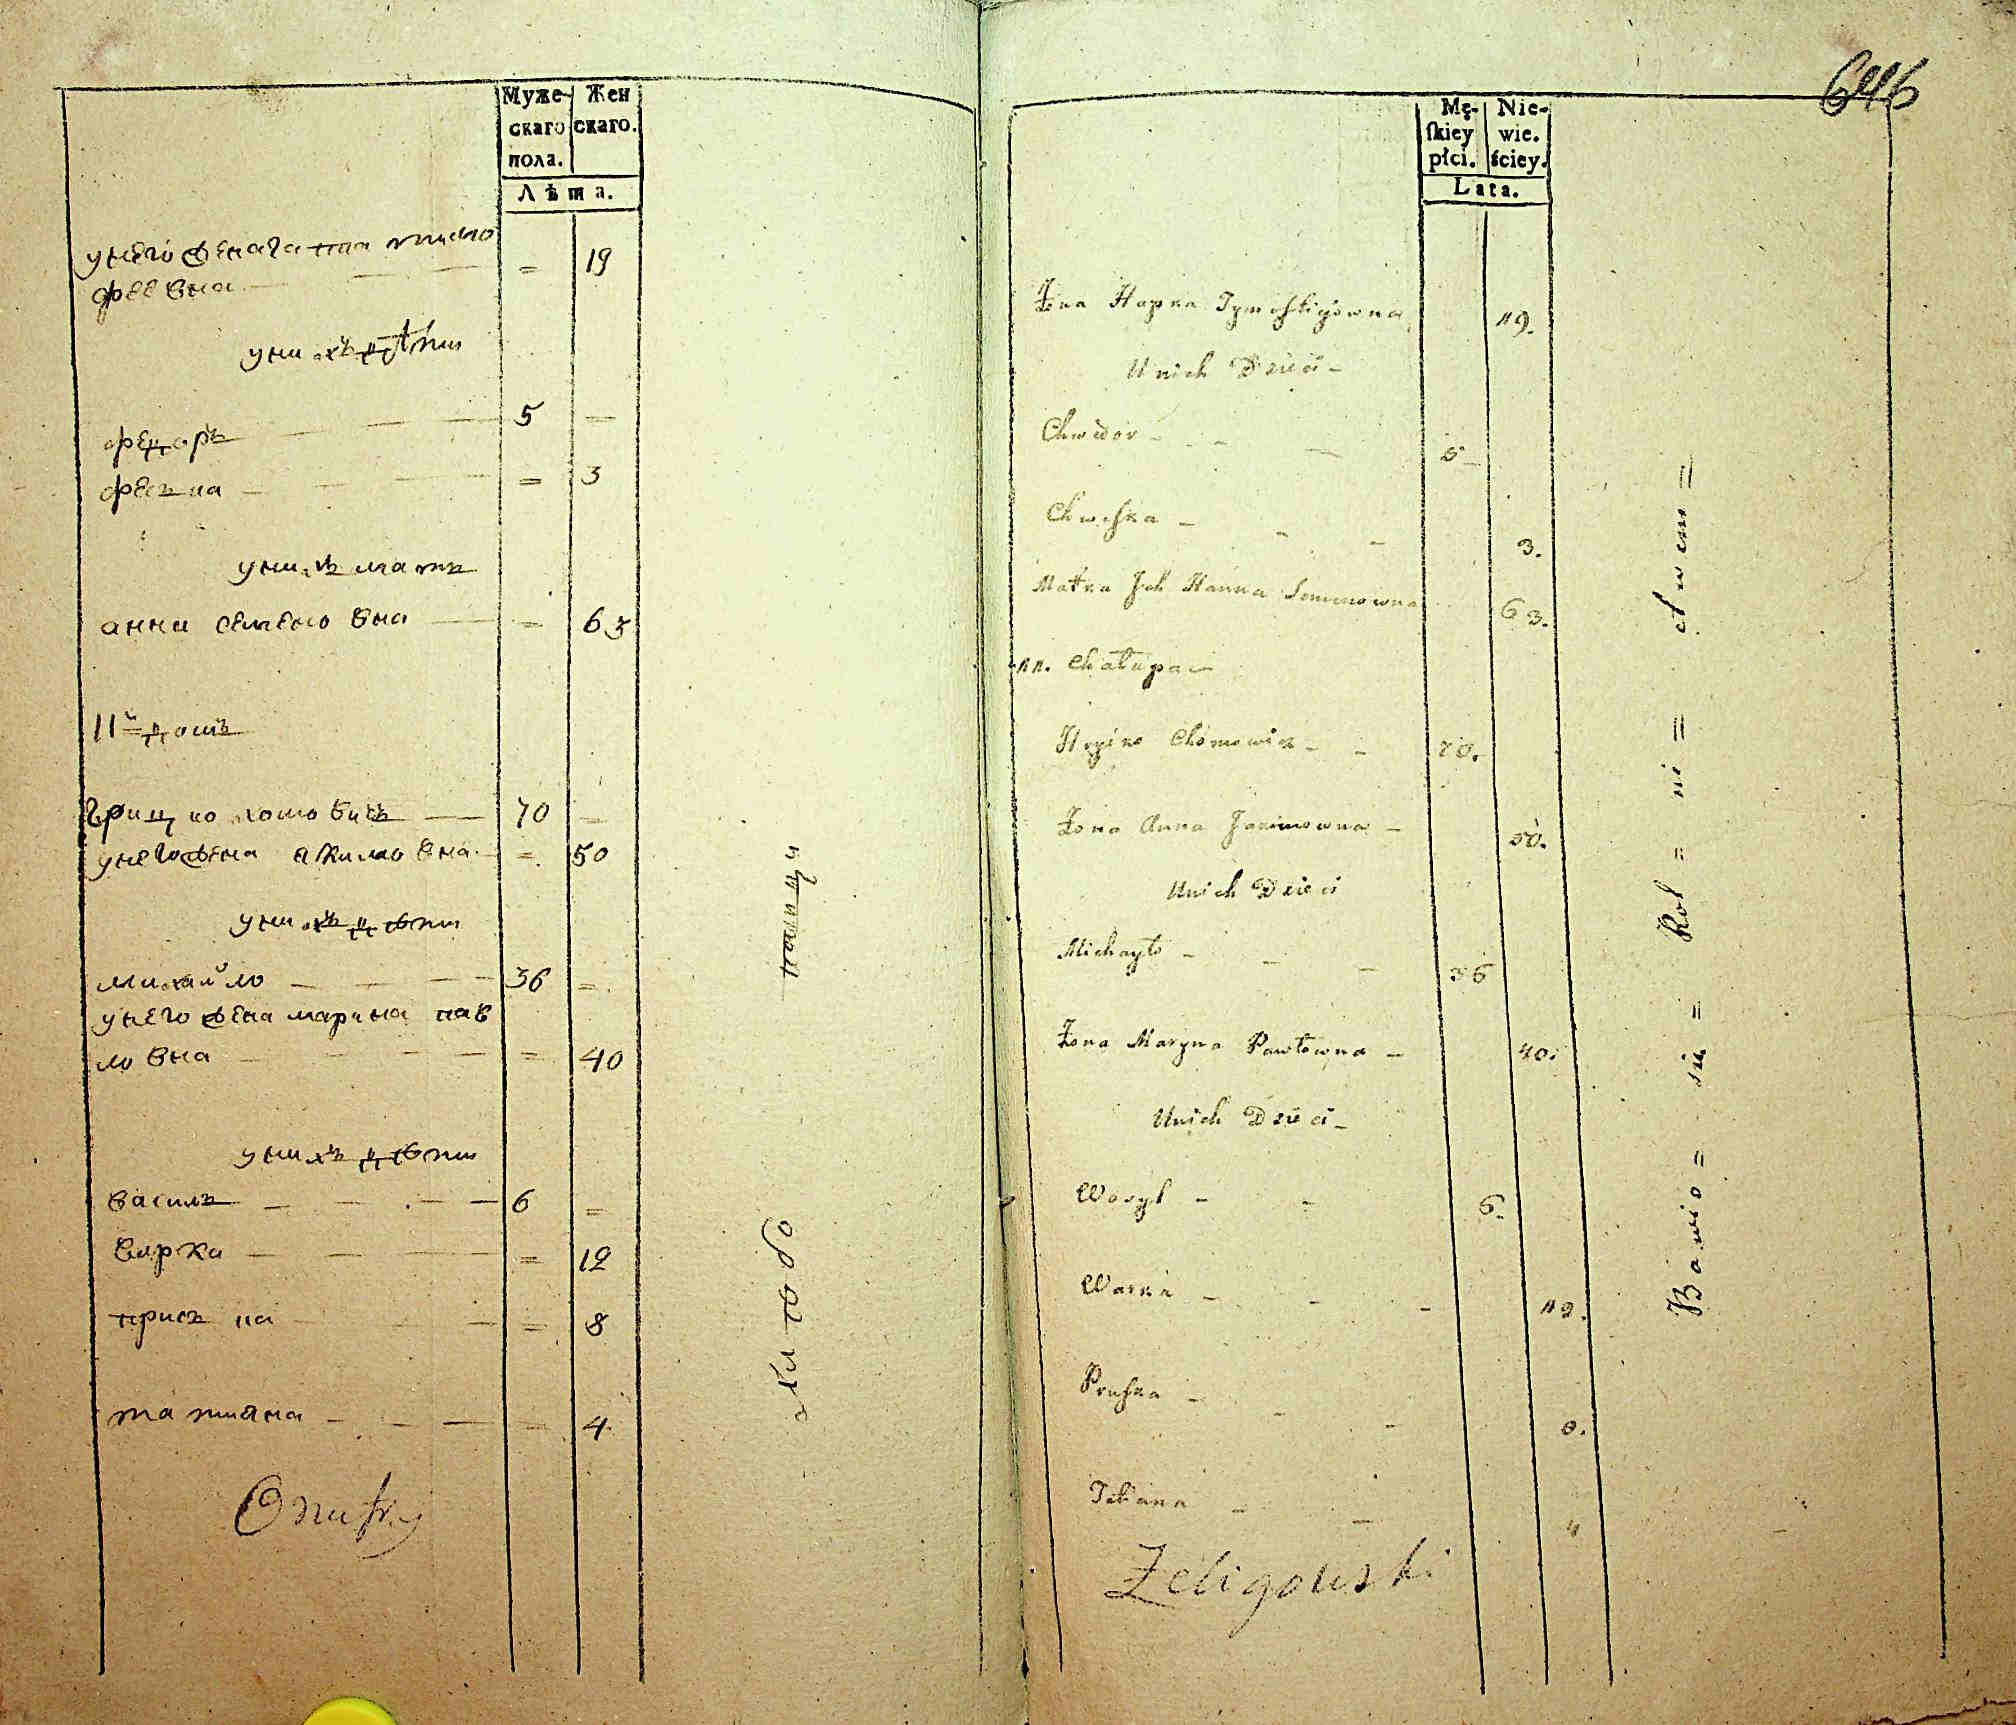 Муже-
скаго
пола.
Жен
скаго.
Лѣта.
унего жена гапка тимо
феевна
19
унихъ дѣти
федоръ 5
феська 3
унихъ мать
анна семеновна 63
11й домъ
Грицко хомовичъ 70
унего жена якимовна 50
унихъ дѣти
михайло 36
унего жена марина пав
ловна 40
унихъ дѣти
василь 6
варка 12
приська 8
татияна 4
Onufry
646
Mę-
skiey
płci.
Nie-
wie.
ściey.
Lata.
Żona Hapka Tymofiejowna 19.
U nich Dzieci
Chwedor 5
Chweśka 3.
Matka Ich Hanna Semenowna 63.
11. Chałupa
Hryćko Chomowicz 70.
Żona Anna Jakimowna 50.
Unich Dzieci
Michayło 36
Żona Maryna Pawłowna 40.
Unich Dzieci
Wasyl 6.
Warka 12.
Pruśka 8.
Tatiana 4
Żeligowski